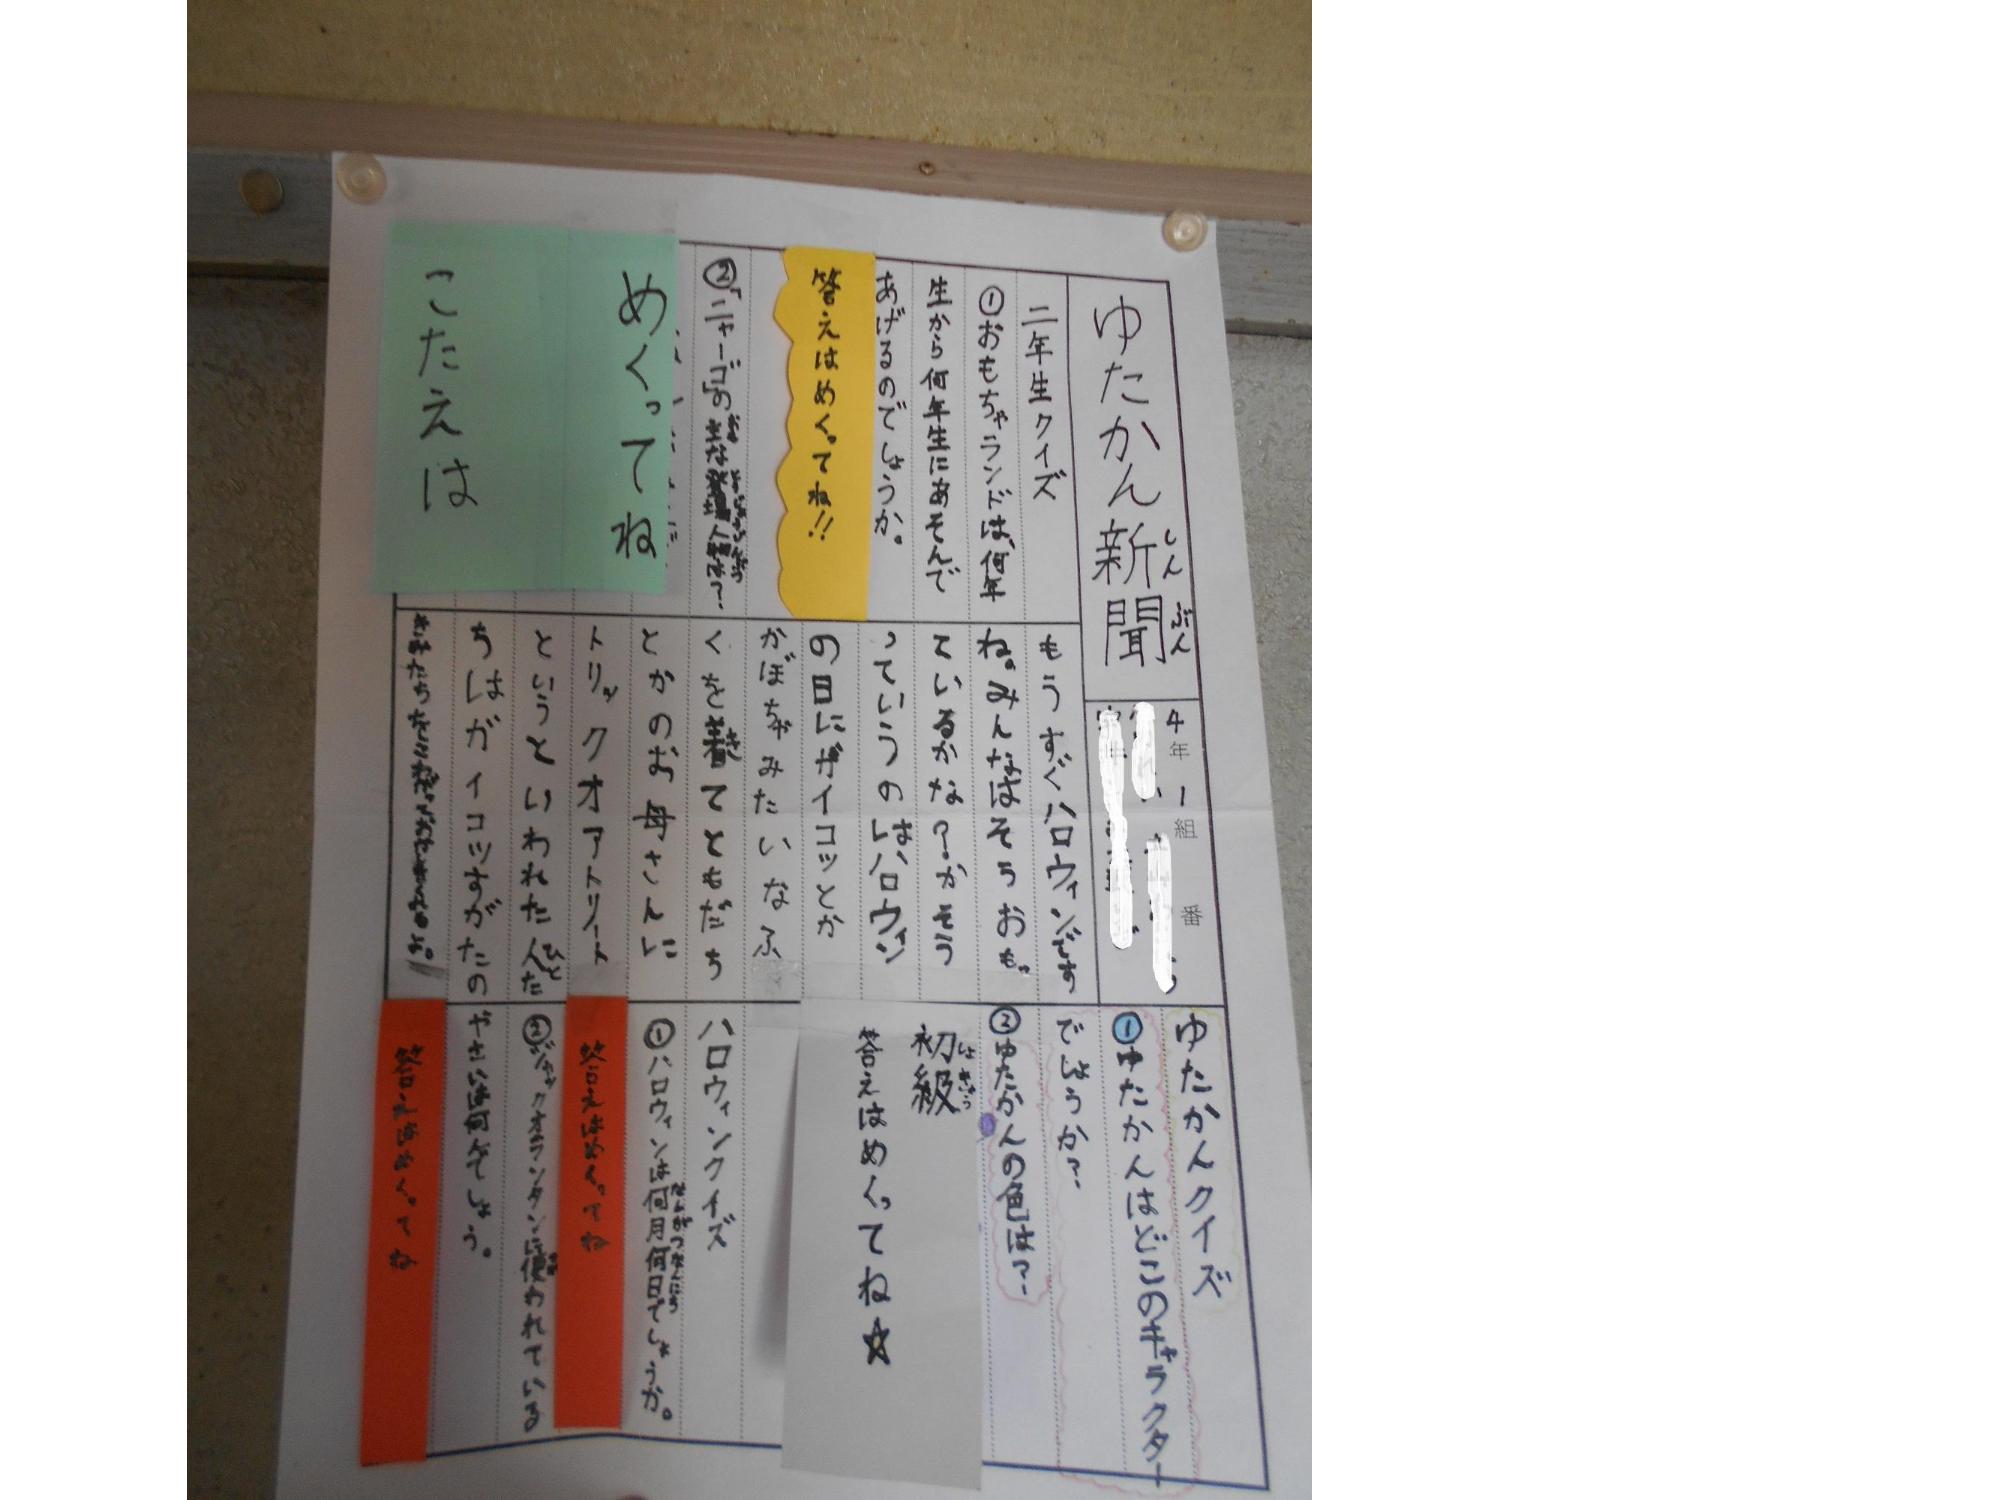 ゆたかん新聞
しんぶん
4年1組 番
二年生クイズ
①おもちゃランドは、何年
生から何年生にあそんで
あげるのでしょうか。
答えはめくってね!!
②「ニャーゴ」の
人物は?
めくってね
こたえは
もうすぐハロウィンです
ね。みんなはそうおも
ているかな?かそう
っていうのはハロウィン
の日にガイコッとか
かぼちゃみたいなふ
くを着てともだち
とかのお母さんに
トリックオアトリート
というといわれた人た
ちはガイコツすがたの
ゆたかんクイズ
①ゆたかんはどこのキャラクター
でしょうか?
②ゆたかんの色は?
初級
しょきゅう
答えはめくってね☆
ハロウィンクイズ
①ハロウィンは何月何日でしょうか。
なんがつなんにち
答えはめくってね
②ジャックオランタンに使われている
やさいは何んでしょう。
答えはめくってね